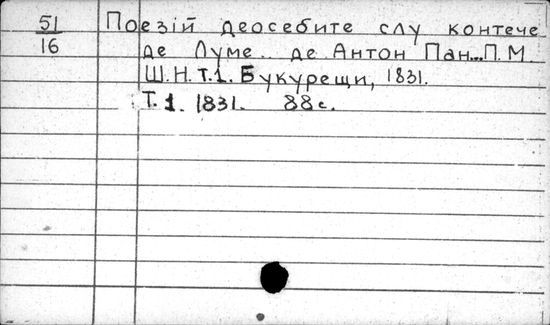 51
16
Поезій деосебите слу контече
де Луме.. де Антон Пан...П.М.
Ш.Н. Т.1. Букурещи, 1831.
Т.1. 1831. 88 с.